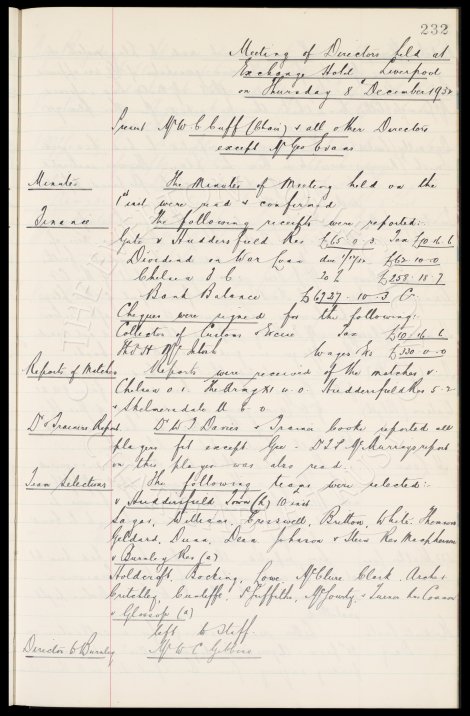 232
Meeting of Directors held at
Exchange Hotel Liverpool
on Thursday 8th December 1932
Present Mr W. C. Cuff (Chair) & all other Directors
except Mr Geo Evans
Minutes The Minutes of Meeting held on the
1st inst were read & confirmed
Finance The following receipts were reported:
Gate v Huddersfield Res £65-0-3 Tax £10-16-6
Dividend on War Loan due 1/12/32 £62-10-0
Chelsea F C £258-18-7
Bank Balance £6727-10-3 Cr
Cheques were signed for the following:
Collector of Customs & Excise Tax £10-16-6
Wages &c £330-0-0
Reports of Matches Reports were received of the matches v.
Chelsea 0-1. 4-0. Huddersfield Res 5-2
& Skelmersdale U 6-0
Dr & Trainers Report Dr W J Davies & Trainer Cooke reported all
players fit except Gee - McMurrays report
on this player was also read.
Team Selections The following teams were selected:-
v Huddersfield Town (h) 10 inst
Sagar, Williams, Cresswell, Britton, White, Thomson
Geldard, Dunn, Dean, Johnson & Stein Res Macpherson
v Burnley Res (a)
Holdcroft, Bocking, Lowe, McClure, Clark, Archer
Critchley, Cunliffe, Griffiths, McGourty, & Turner
v Glossop (a)
left to Staff.
Director to Burnley Mr W C Gibbins